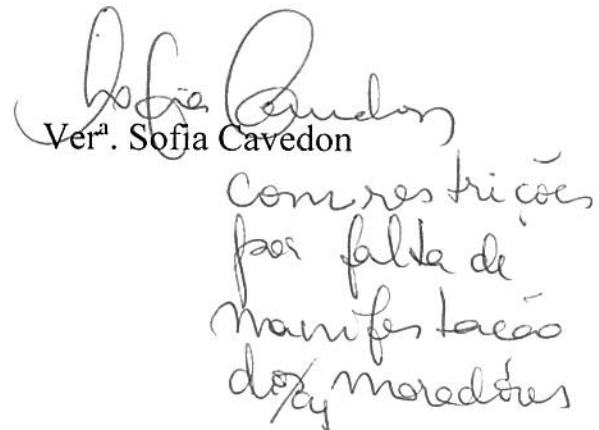 Sofia Cavedon
Verª. Sofia Cavedon
com restrições
por falta de
manifestação
dos/as moradores